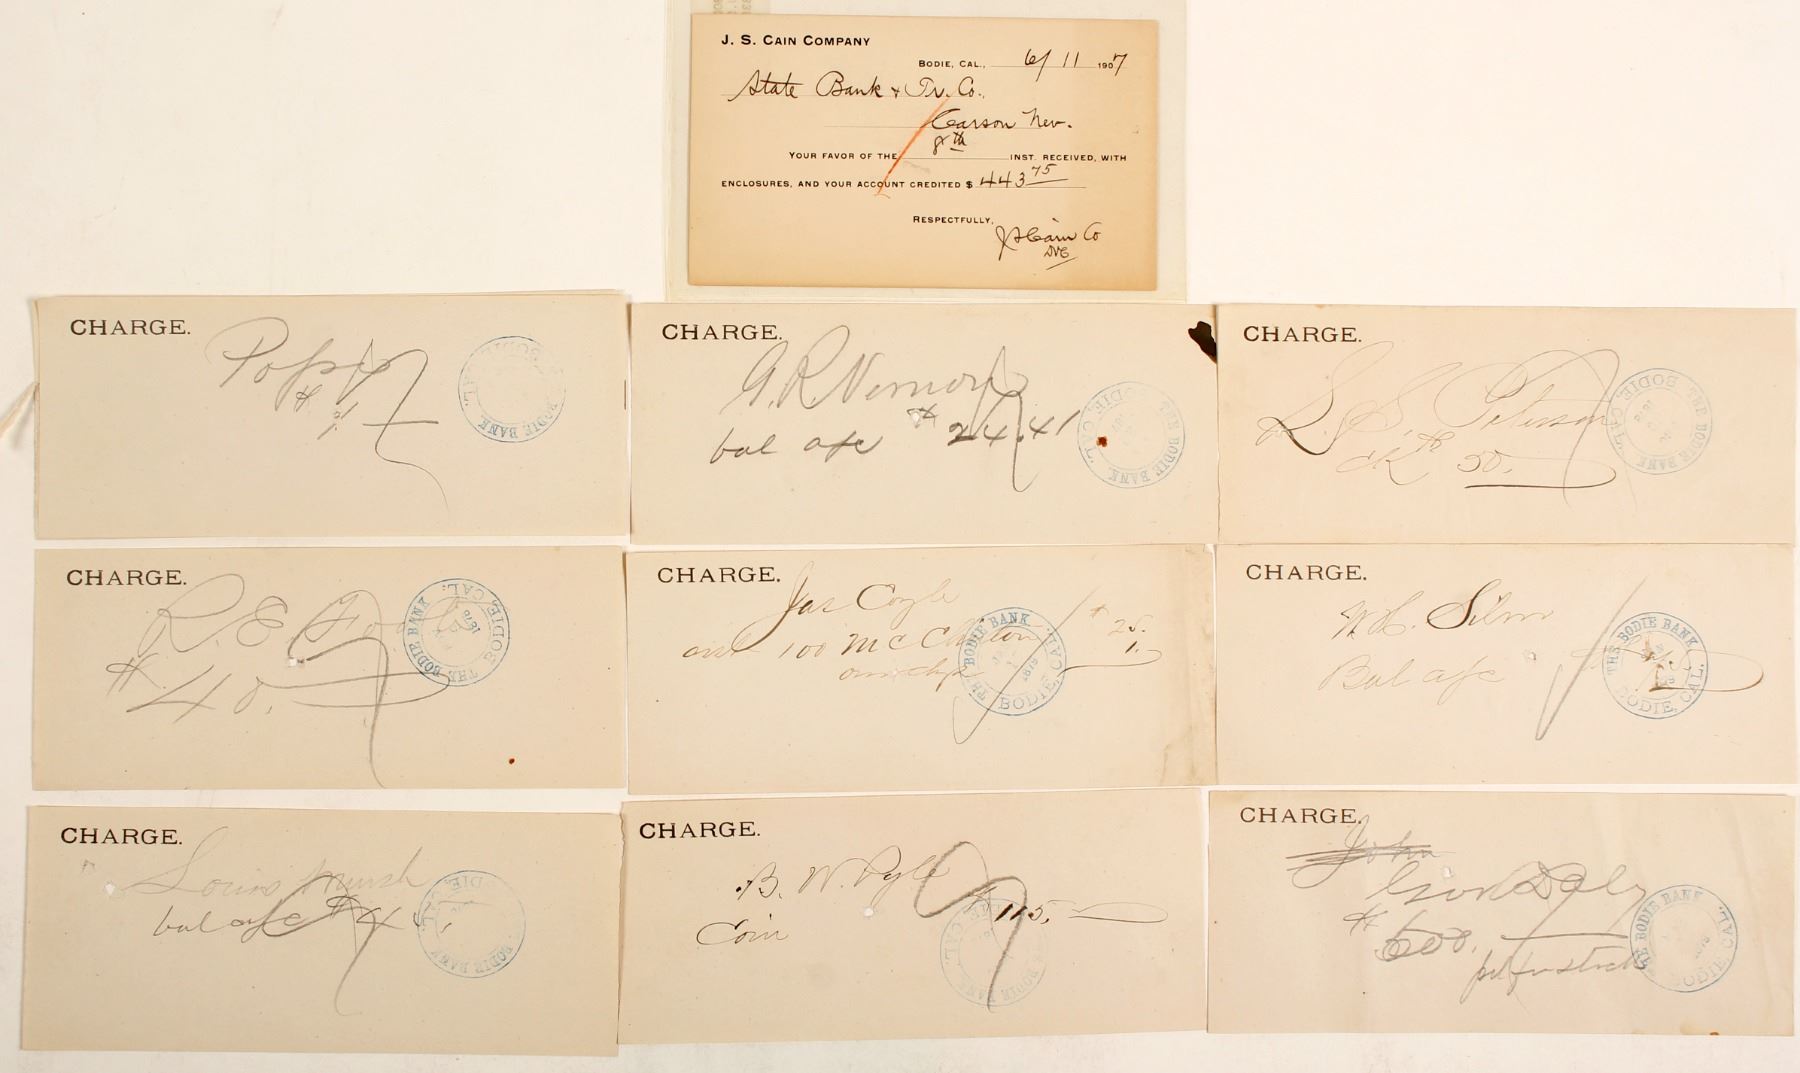 J. S. CAIN COMPANY
BODIE, CAL., 6/11 1907
State Bank & Tr. Co.,
Carson Nev.
8th
YOUR FAVOR OF THE INST. RECEIVED, WITH
ENCLOSURES, AND YOUR ACCOUNT CREDITED $ 443 75
RESPECTFULLY,
JS Cain Co
DVC
CHARGE.
THE BODIE BANK.
BODIE, CAL.
CHARGE.
G. R. Vernon
bal a/c $24.41
THE BODIE BANK.
BODIE, CAL.
CHARGE.
L. S. Peterson
ck $50.
THE BODIE BANK
BODIE, CAL.
CHARGE.
R. E.
$40.
THE BODIE BANK
BODIE, CAL.
1878
CHARGE.
Jas Coyle
100 McClinton $25.
1.
THE BODIE BANK
1879
BODIE, CAL.
CHARGE.
Bal a/c
THE BODIE BANK
BODIE, CAL.
CHARGE.
Louis
bal a/c $4
BODIE BANK
CHARGE.
B. W. Pyle
Coin $115.
BODIE BANK
CAL.
CHARGE.
John
Daly
$600.
THE BODIE BANK
BODIE, CAL.